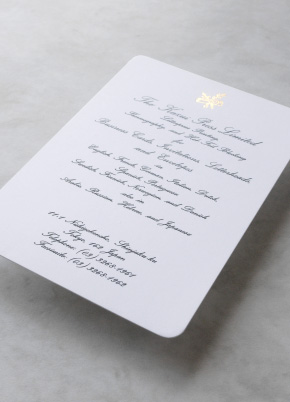 The Kazui Press Limited
Letterpress Printing
Thermography and Hot Foil Blocking
for
Business Cards, Invitations, Letterheads,
and Envelopes
in
English, French, German, Italian, Dutch,
Swedish, Spanish, Portuguese,
Finnish, Norwegian and Danish
also in
Arabic, Russian, Hebrew and Japanese
Tokyo 162 Japan
Telephone (03) 3268-1961
Facsimile (03) 3268-1962